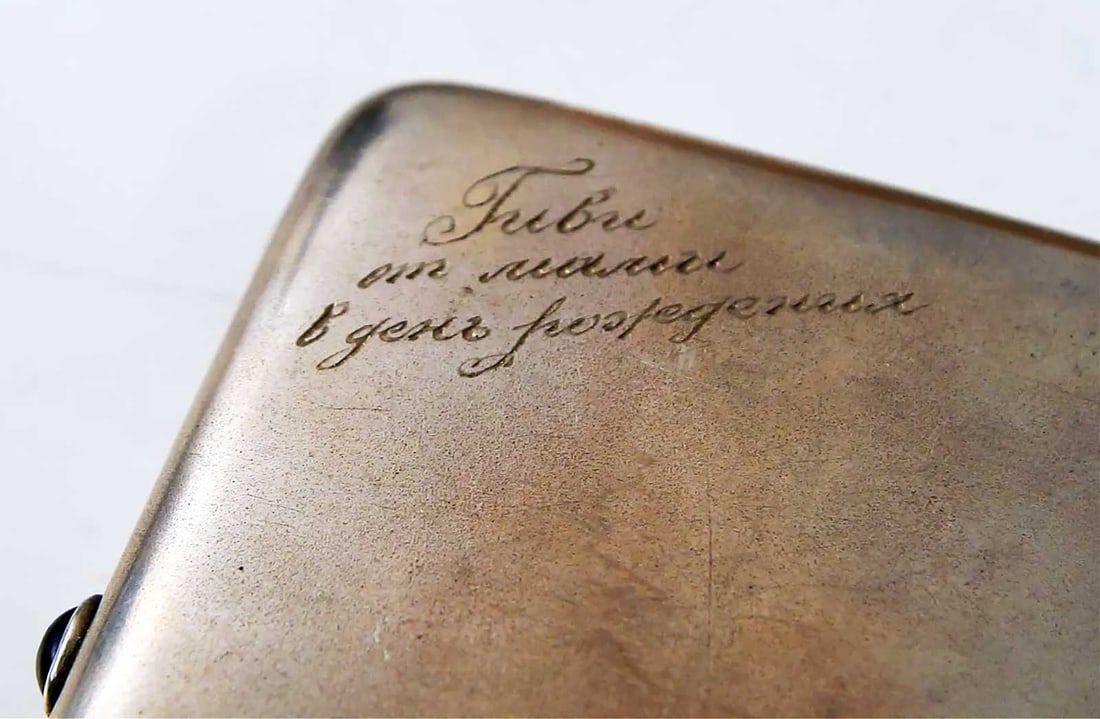 Гиви
от мамы
в день рождения